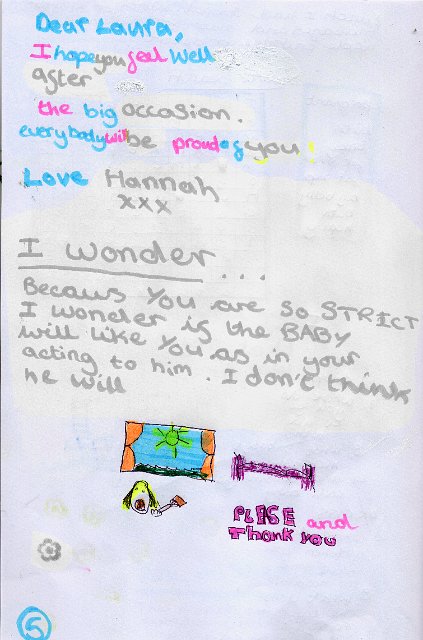 Dear Laura,
I hope you feel well
after
the big occasion.
everybody will be proud of you!
Love Hannah
xxx
I wonder...
Becaus you are so STRICT
I wonder if the BABY
will like you as in your
acting to him. I don't think
he will
PLESE and
Thank you
5